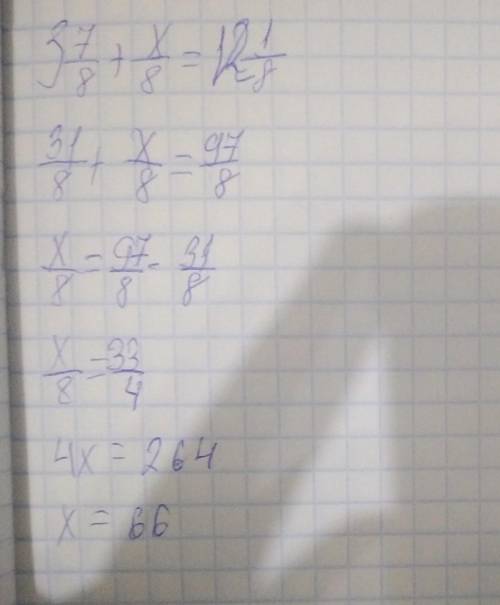 3 7/8 + x/8 = 12 1/8
31/8 + x/8 = 97/8
x/8 = 97/8 - 31/8
x/8 = 33/4
4x = 264
x = 66